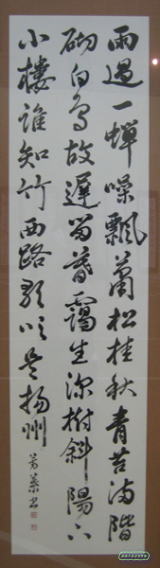 雨過一蟬噪飄蕭松桂秋青苔滿階
砌白鳥故遲留暮靄生深樹斜陽下
小樓誰知竹西路歌吹是揚州